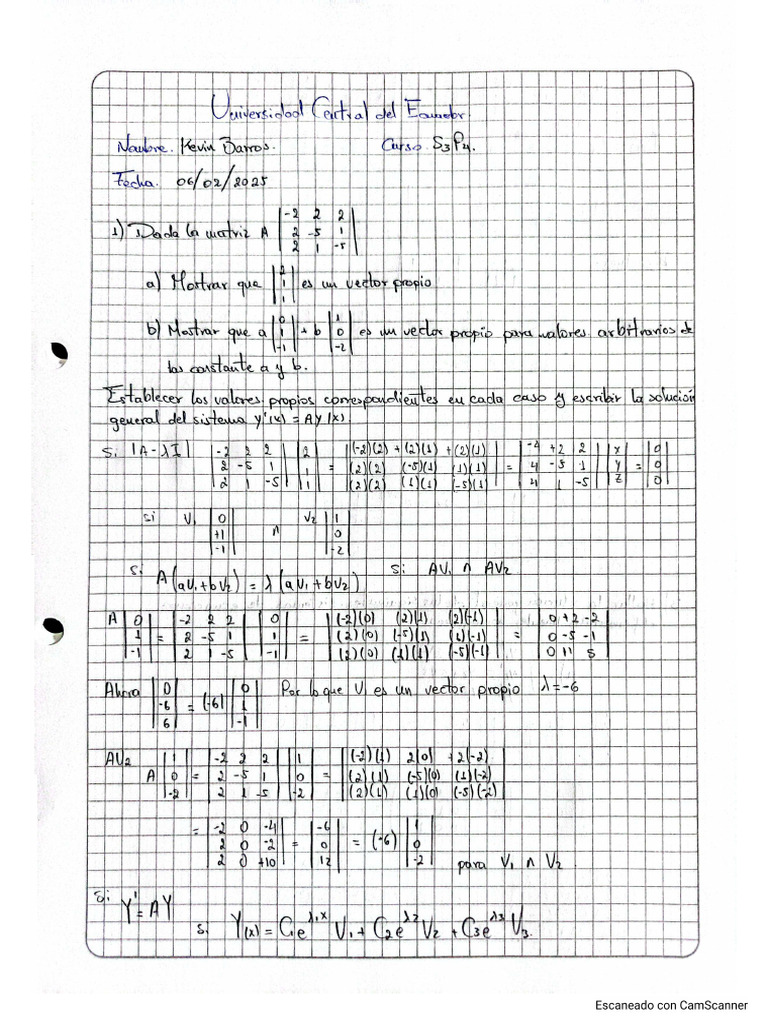 Universidad Central del Ecuador
Nombre. Kevin Barros. Curso. S3P4.
Fecha. 06/02/2025
1) Dada la matriz A |-2 2 2|
|2 -5 1|
|2 1 -5|
a) Mostrar que |2|
|1| es un vector propio
|1|
b) Mostrar que a |0| + b |1|
|1| |0| es un vector propio para valores arbitrarios de
|-1| |-2|
las constante a y b.
Establecer los valores propios correspondientes en cada caso y escribir la solución
general del sistema y'(x) = AY(x).
Si |A-λI| |-2 2 2| |2| = |(-2)(2) + (2)(1) + (2)(1)| = |-4 +2 2| |x| = |0|
|2 -5 1| |1| |(2)(2) (-5)(1) (1)(1)| |4 -5 1| |y| |0|
|2 1 -5| |1| |(2)(2) (1)(1) (-5)(1)| |4 1 -5| |z| |0|
si V1 |0| ∧ V2 |1|
|+1| |0|
|-1| |-2|
Si A(aV1+bV2) = λ(aV1+bV2) Si: AV1 ∧ AV2
A |0| = |-2 2 2| |0| = |(-2)(0) (2)(1) (2)(-1)| = |0 +2 -2|
|1| |2 -5 1| |1| |(2)(0) (-5)(1) (1)(-1)| |0 -5 -1|
|-1| |2 1 -5| |-1| |(2)(0) (1)(1) (-5)(-1)| |0 11 5|
Ahora |0| = (-6) |0| Por lo que V1 es un vector propio λ=-6
|-6| |1|
|6| |-1|
AV2
A |1| = |-2 2 2| |1| = |(-2)(1) 2(0) +2(-2)|
|0| |2 -5 1| |0| |(2)(1) (-5)(0) (1)(-2)|
|-2| |2 1 -5| |-2| |(2)(1) (1)(0) (-5)(-2)|
= |-2 0 -4| = |-6| = (-6) |1|
|2 0 -2| |0| |0|
|2 0 +10| |12| |-2| para V1 ∧ V2
Si Y'=AY
Si Y(x) = C1e^λ1x V1 + C2e^λ2 V2 + C3e^λ3 V3.
Escaneado con CamScanner